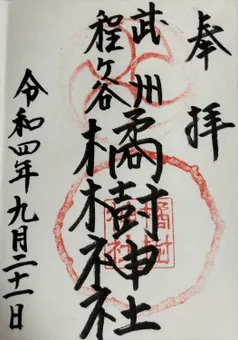 奉拝
武州
程ヶ谷
橘樹神社
令和四年九月二十一日
橘樹
神社